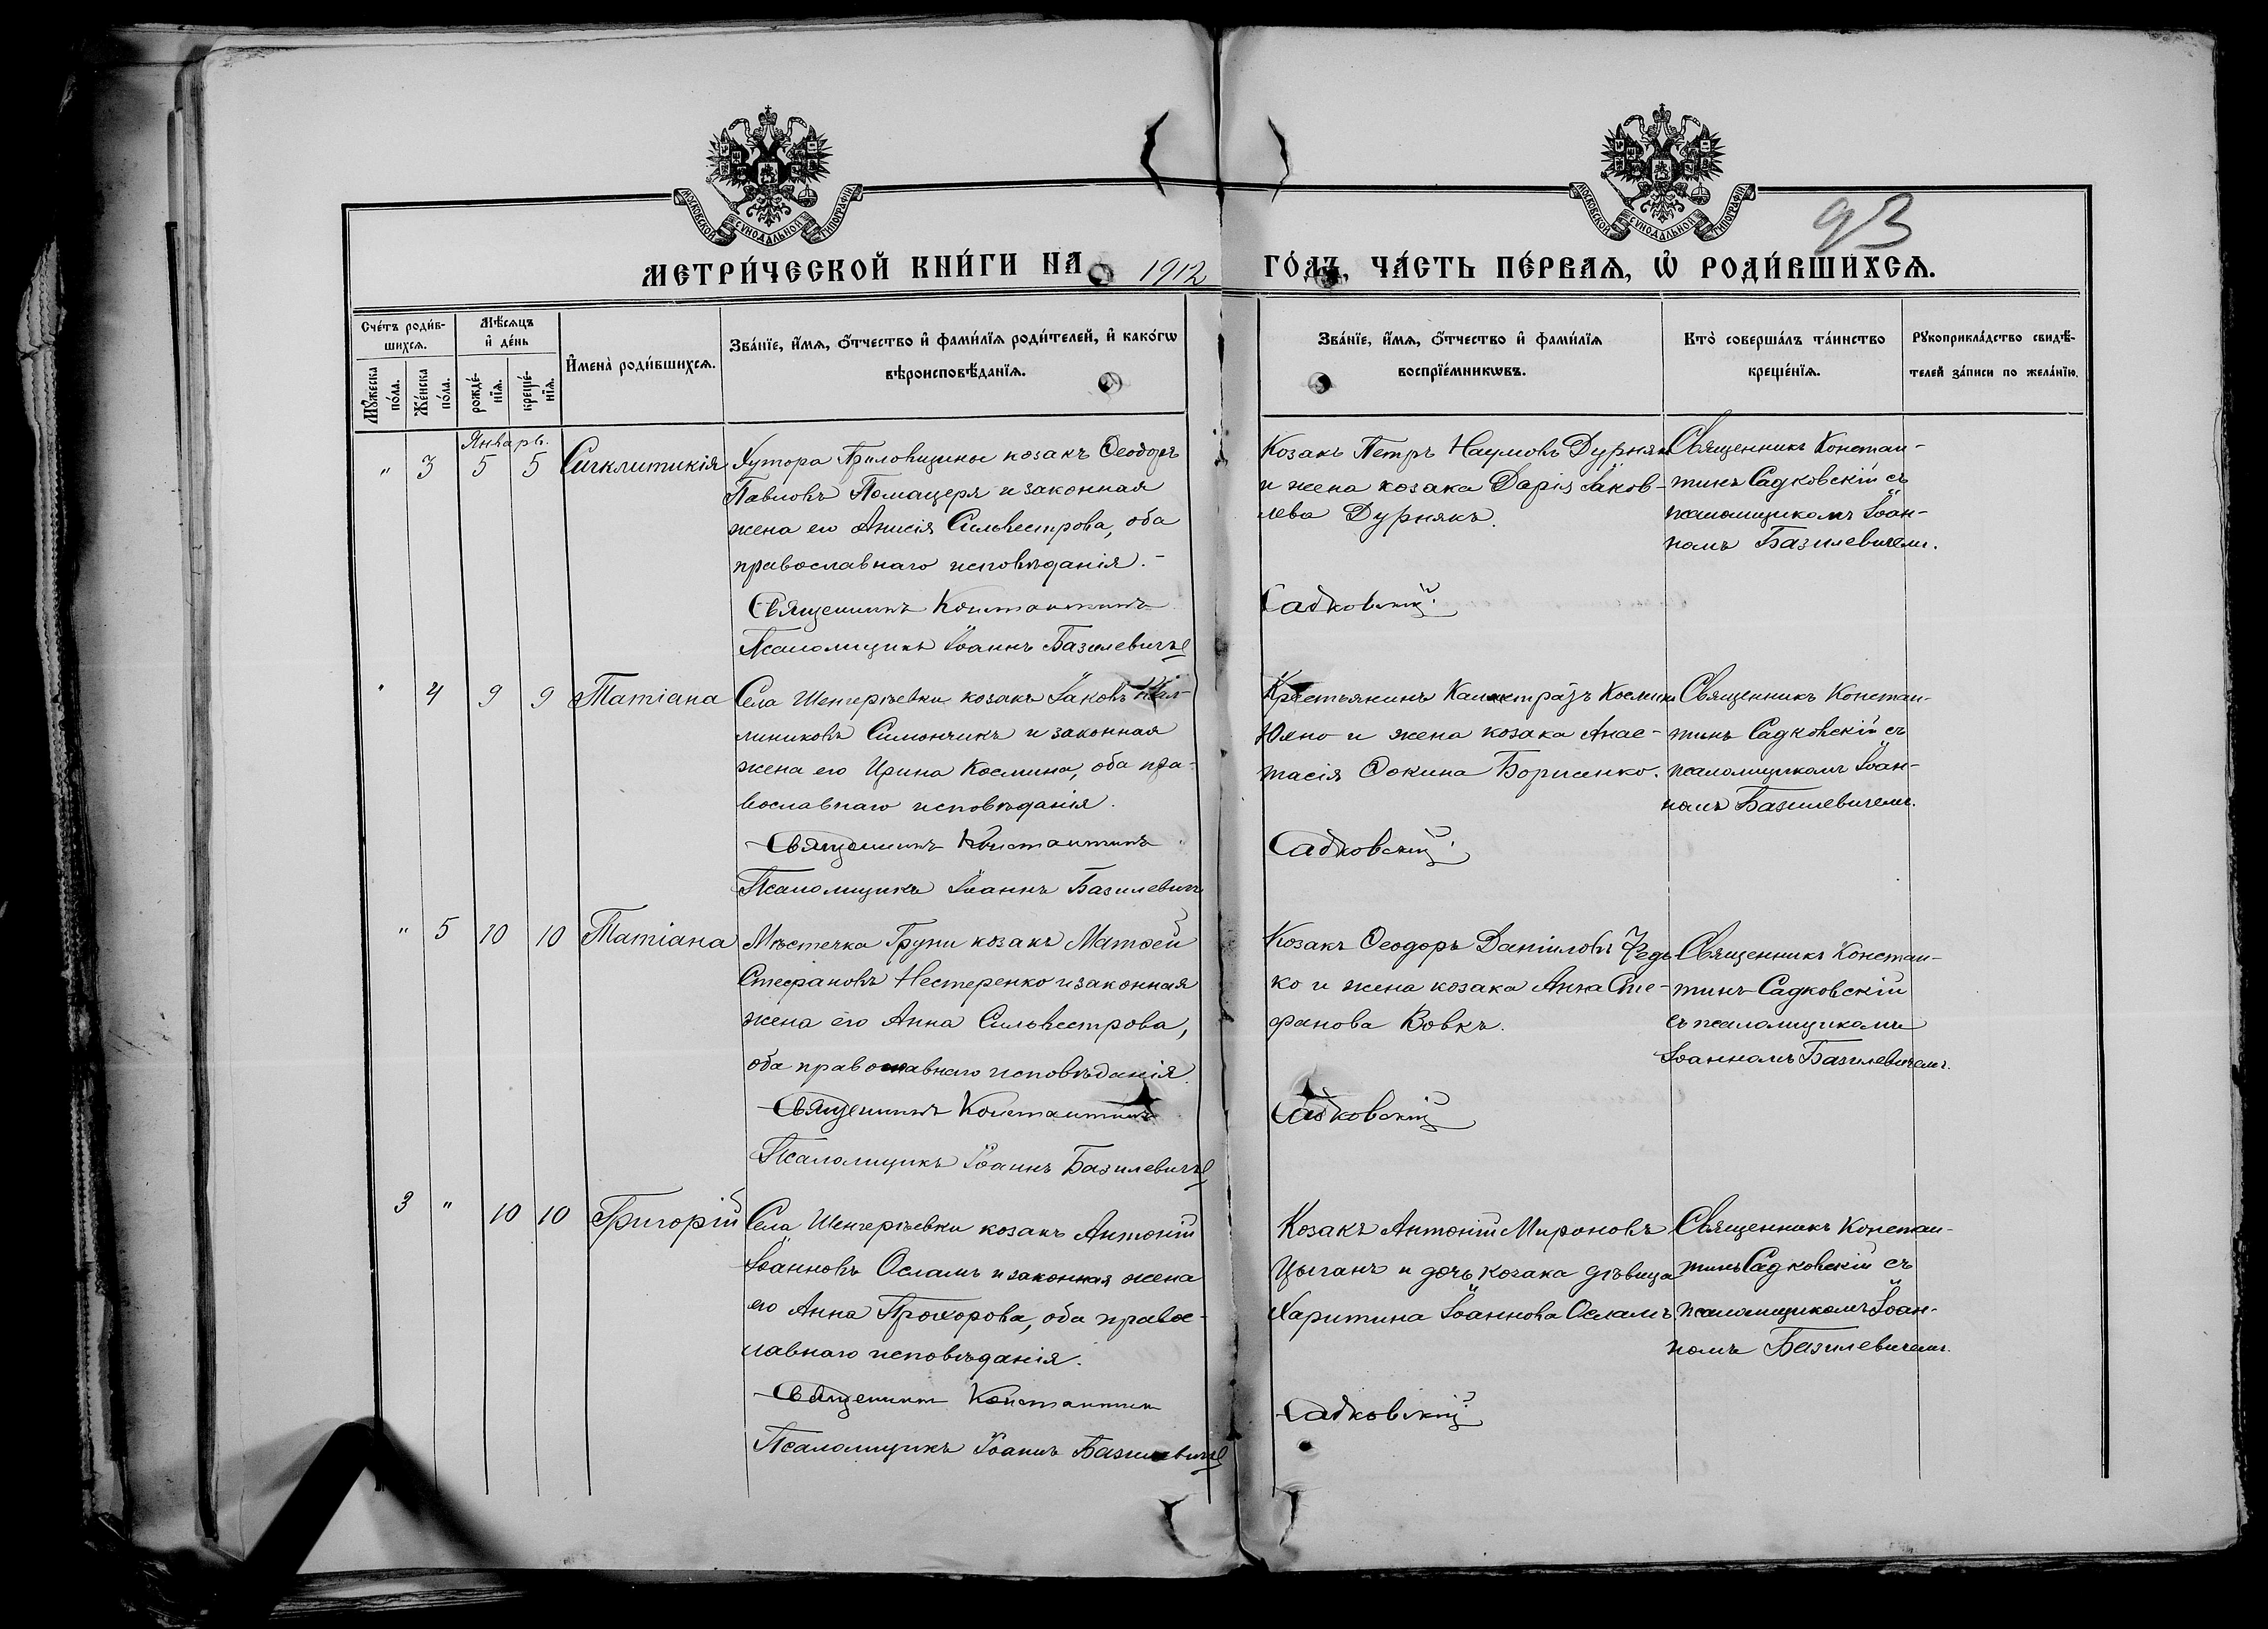 МОСКОВСКОЙ СѴНОДАЛЬНОЙ ТИПОГРАФІИ
МОСКОВСКОЙ СѴНОДАЛЬНОЙ ТИПОГРАФІИ
93
МЕТРИ́ЧЕСКОЙ КНИ́ГИ НА 1912 ГО́ДЪ, ЧА́СТЬ ПЕ́РВАѦ, Ѡ҆ РОДИ́ВШИХСѦ.
Сче́тъ роди́в-
шихсѧ.
Мѣ́сѧцъ
и҆ де́нь
Мꙋ́жеска
по́ла.
Же́нска
по́ла.
рожде́-
нїѧ.
креще́-
нїѧ.
И҆мена̀ роди́вшихсѧ.
Зва́нїе, и҆́мѧ, ѻ҆́тчество и҆ фами́лїѧ роди́телей, и҆ како́гѡ
вѣроисповѣ́данїѧ.
Зва́нїе, и҆́мѧ, ѻ҆́тчество и҆ фами́лїѧ
воспрїе́мникѡвъ.
Кто̀ соверша́лъ та́инство
креще́нїѧ.
Рꙋкоприкла́дство свидѣ́-
телей за́писи по жела́нїю.
Январь.
" 3 5 5 Сигклитикія
Хутора козакъ Ѳеодоръ
Павловъ Помацеря и законная
жена его Анисія Сильвестрова, оба
православнаго исповѣданія.-
Священникъ Константинъ
Псаломщикъ Іоаннъ Базилевичъ
Козакъ Петръ Наумовъ Дурняк
и жена козака Дарія Іаков-
лева Дурнякъ.
Садковскій.
Священникъ Констан-
тинъ Садковскій съ
псаломщикомъ Іоан-
номъ Базилевичем.
" 4 9 9 Татіана
Села Шенгеріевки козакъ Іаковъ Кал-
линиковъ Симончикъ и законная
жена его Ирина Космина, оба пра-
вославнаго исповѣданія.
Священникъ Константинъ
Псаломщикъ Іоаннъ Базилевичъ
Крестьянинъ Калистратъ Космин
Юхно и жена козака Анас-
тасія Ѳокина Борисенко.
Садковскій.
Священникъ Констан-
тинъ Садковскій съ
псаломщикомъ Іоан-
номъ Базилевичем.
" 5 10 10 Татіана
Мѣстечка Груни козакъ Матѳей
Стефановъ Нестеренко и законная
жена его Анна Сильвестрова,
оба православнаго исповѣданія.
Священникъ Константинъ
Псаломщикъ Іоаннъ Базилевичъ
Козакъ Ѳеодоръ Даніиловъ Редь-
ко и жена козака Анна Сте-
фанова Вовкъ.
Садковскій
Священникъ Констан-
тинъ Садковскій
съ псаломщикомъ
Іоанномъ Базилевичем.
3 " 10 10 Григорій
Села Шенгеріевки козакъ Антоній
Іоанновъ Осламъ и законная жена
его Анна Прохорова, оба правос-
лавнаго исповѣданія.
Священникъ Константин
Псаломщикъ Іоаннъ Базилевичъ
Козакъ Антоній Мироновъ
Цыганъ и дочь козака дѣвица
Харитина Іоаннова Осламъ.
Садковскій.
Священникъ Констан-
тинъ Садковскій съ
псаломщикомъ Іоан-
номъ Базилевичем.